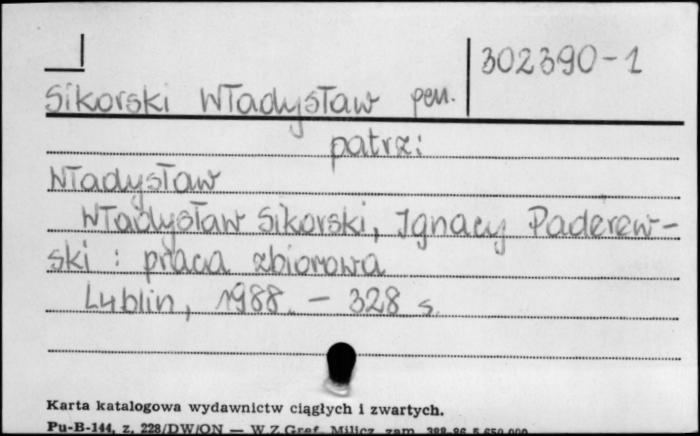 302390-1
Sikorski Władysław gen.
patrz:
Władysław
Władysław Sikorski, Ignacy Paderew-
ski : praca zbiorowa
Lublin, 1988. - 328 s.
Karta katalogowa wydawnictw ciągłych i zwartych.
Pu-B-144, z. 228/DW/ON — W Z Graf. Milicz zam. 388-86 5.650.000